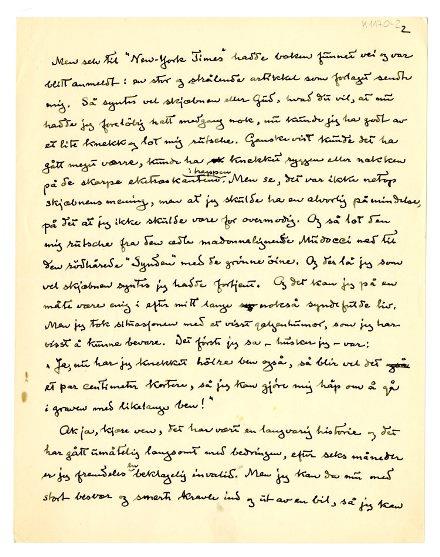 4170-2
2
Men selv til "New-York Times" hadde boken funnet vei og var
blitt anmeldt i en stor og strålende artikkel som forlaget sendte
mig. Så syntes vel skjæbnen eller Gud, hvad du vil, at nu
hadde jeg foreløbig hatt medgang nok, nu kunde jeg ha godt av
et lite knekk og lot mig rutsche. Ganske visst kunde det ha
gått meget værre, kunde ha knekket ryggen eller nakken
på de skarpe ekstra kantene i trappen. Men se, det var ikke netop
skjæbnens mening, men at jeg skulde ha en alvorlig påmindelse,
på det at jeg ikke skulde være for overmodig. Og så lot den
mig rutsche fra den ædle madonnalignende Mudocci ned til
den rödhårede "Synden" med de grønne øine. Og der lå jeg som
vel skjæbnen syntes jeg hadde fortjent. Og det kan jeg på en
måte være enig i efter mitt lange nokså syndefulde liv.
Men jeg tok situasjonen med et visst galgenhumor, som jeg har
visst å kunne bevare. Det første jeg sa – husker jeg – var:
"Ja, nu har jeg knekket höire ben også, så blir vel det
et par centimeter kortere, så jeg kan gjøre mig håp om å gå
i graven med likelange ben!"
Ak ja, kjære ven, det har vært en langvarig historie og det
har gått umåtelig langsomt med bedringen, efter seks måneder
er jeg fremdeles en beklagelig invalid. Men jeg kan da nu med
stort besvær og smerte kravle ind og ut av en bil, så jeg kan